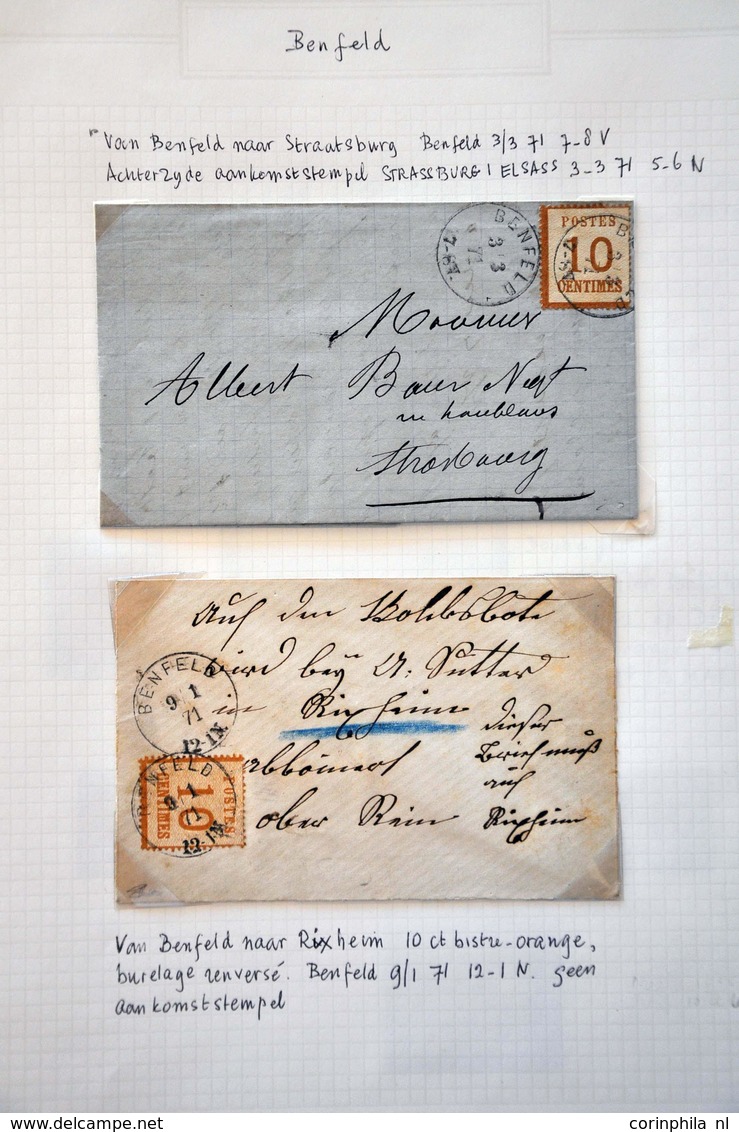 Benfeld
Van Benfeld naar Straatsburg Benfeld 3/3 71 7-8 V
Achterzyde aankomststempel STRASSBURG I ELSASS 3-3 71 5-6 N
BENFELD
3-3
71
7-8V.
POSTES
10
CENTIMES
Albert Baur
Strasbourg
auf den
wird bey A. Sutter
in Rixheim dieser
Brief muß
auf
ober Rixheim
BENFELD
9 1
71
12-1N.
POSTES
10
CENTIMES
Van Benfeld naar Rixheim 10 ct bistre-orange,
burelage renversé. Benfeld 9/1 71 12-1 N. geen
aankomststempel
corinphila nl